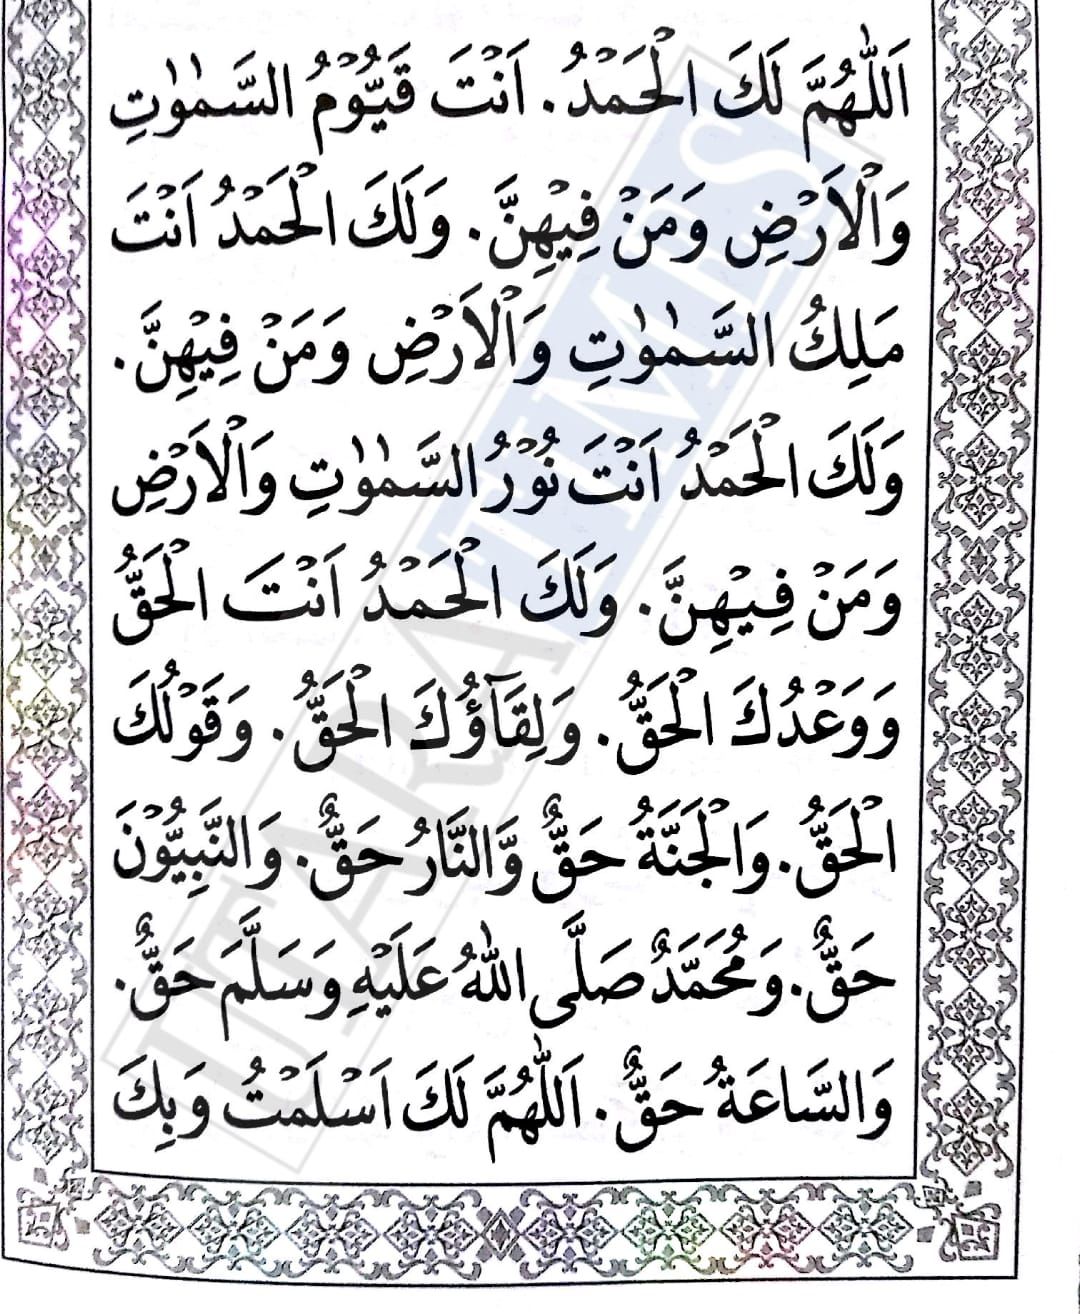 اَللّٰهُمَّ لَكَ الْحَمْدُ. اَنْتَ قَيُّوْمُ السَّمٰوٰتِ
وَالْاَرْضِ وَمَنْ فِيْهِنَّ. وَلَكَ الْحَمْدُ اَنْتَ
مَلِكُ السَّمٰوٰتِ وَالْاَرْضِ وَمَنْ فِيْهِنَّ.
وَلَكَ الْحَمْدُ اَنْتَ نُوْرُ السَّمٰوٰتِ وَالْاَرْضِ
وَمَنْ فِيْهِنَّ. وَلَكَ الْحَمْدُ اَنْتَ الْحَقُّ
وَوَعْدُكَ الْحَقُّ. وَلِقَآؤُكَ الْحَقُّ. وَقَوْلُكَ
الْحَقُّ. وَالْجَنَّةُ حَقٌّ وَّالنَّارُ حَقٌّ. وَالنَّبِيُّوْنَ
حَقٌّ. وَمُحَمَّدٌ صَلَّى اللّٰهُ عَلَيْهِ وَسَلَّمَ حَقٌّ.
وَالسَّاعَةُ حَقٌّ. اَللّٰهُمَّ لَكَ اَسْلَمْتُ وَبِكَ
UTARA TIMES